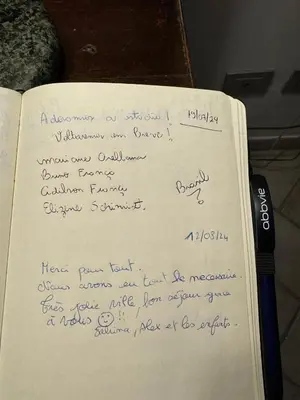 Adoramos a estadia! 19/07/24
Voltaremos em Breve!
Mariane Arellana
Bruno França
Adilson França
Elizene Schimidt.
Brasil
12/08/24
Merci pour tout.
Nous avons eu tout le necessaire.
Très jolie ville, bon séjour grace
à vous !!
Sabrina, Alex et les enfants.
abbvie